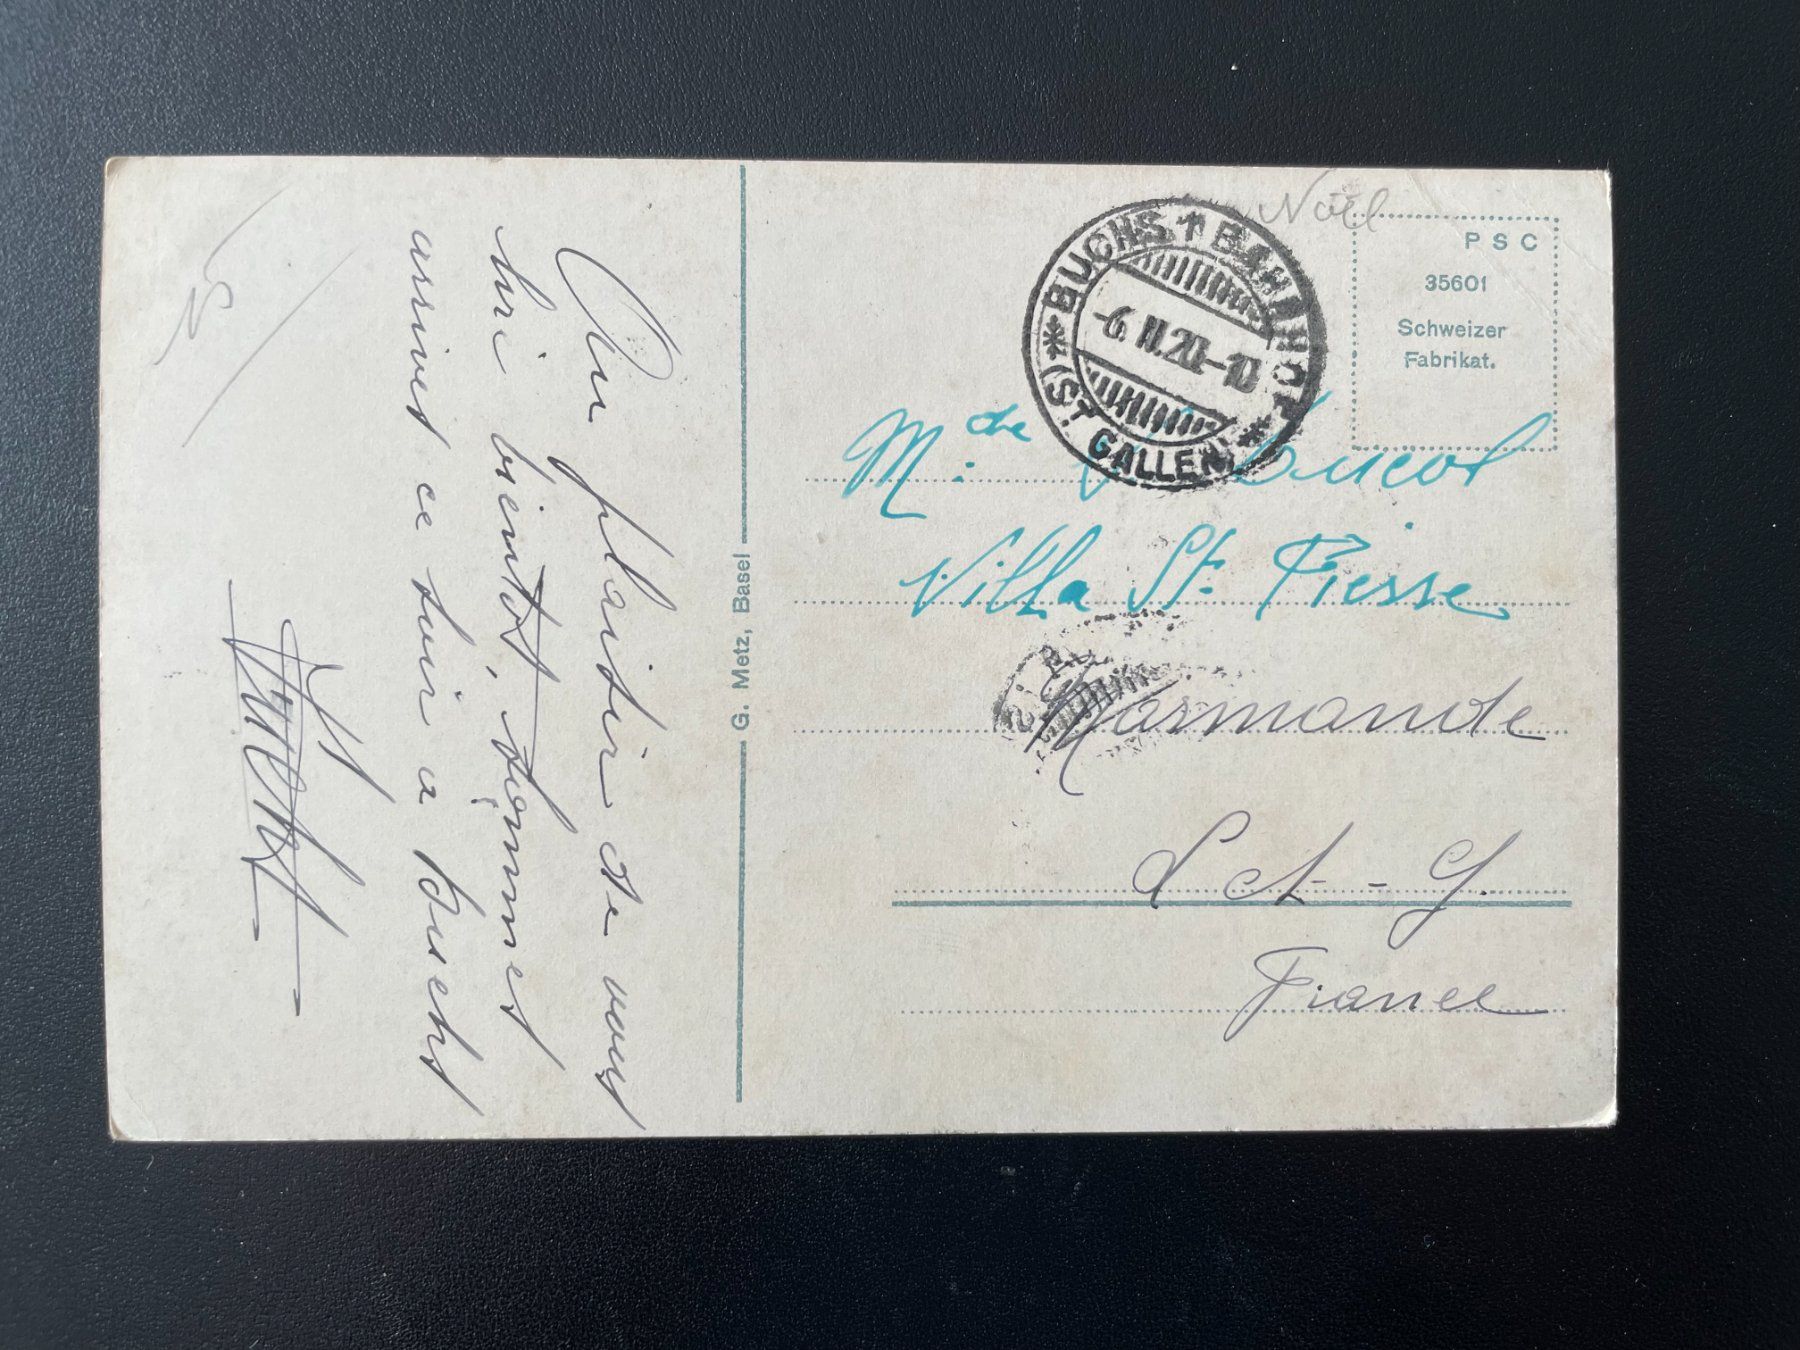 Au plaisir de vous
lire bientôt, sommes
arrives ce soir a Buchs
G. Metz, Basel
Noël
BUCHS 1 BAHNHOF
-6. II. 20-10
(ST GALLEN)
PSC
35601
Schweizer
Fabrikat.
M.de
Villa St. Pierre
Marmande
Lct-G.
France